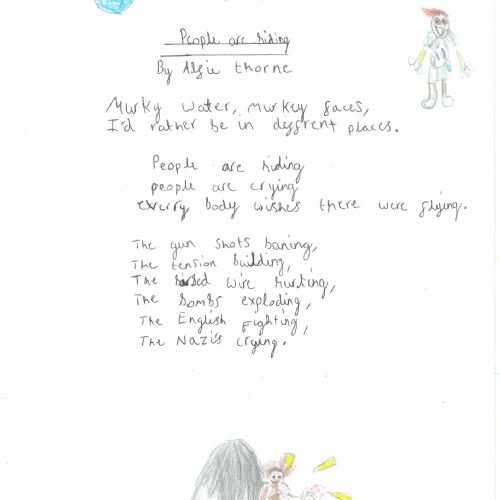 People are hiding
By Algie thorne
Murky water, murkey faces,
I'd rather be in diffrent places.
People are hiding
people are crying
everry body wishes there were flying.
The gun shots baning,
The tension building,
The barbed wire hurting,
The bombs exploding,
The English fighting,
The Nazi's crying.